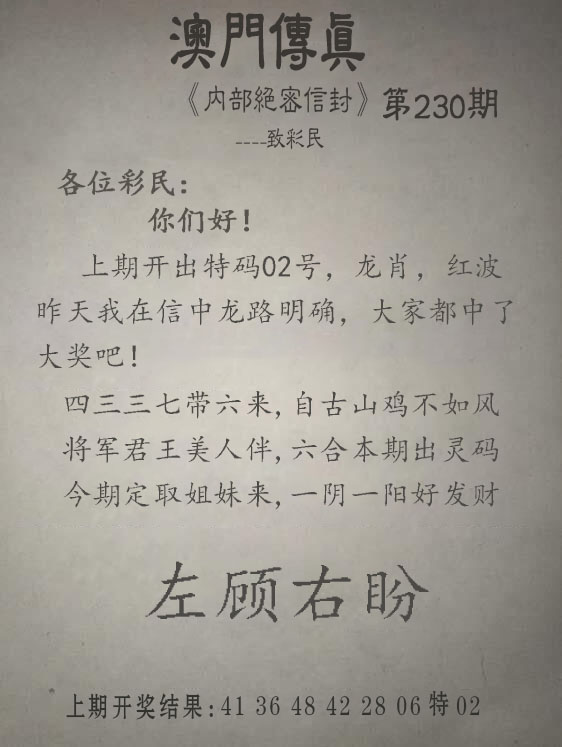 澳門傳眞
《内部絕密信封》第230期
----致彩民
各位彩民：
你们好！
上期开出特码02号，龙肖，红波
昨天我在信中龙路明确，大家都中了
大奖吧！
四三三七带六来,自古山鸡不如风
将军君王美人伴,六合本期出灵码
今期定取姐妹来,一阴一阳好发财
左顾右盼
上期开奖结果:41 36 48 42 28 06 特 02